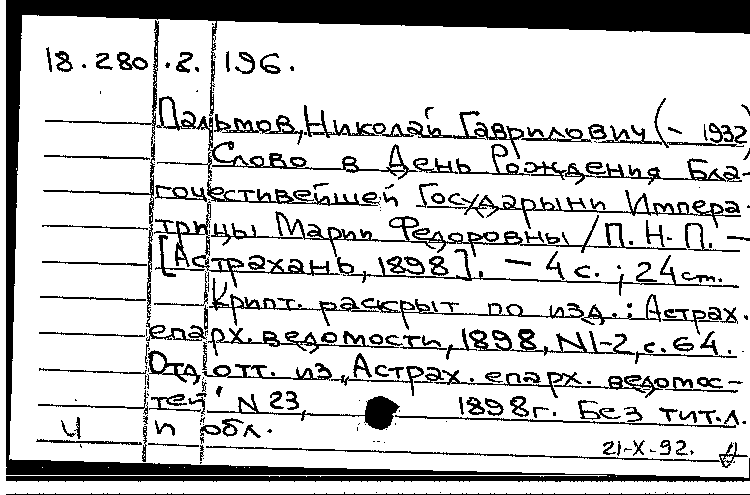 18.280.2.196.
Пальмов, Николай Гаврилович (- 1932)
Слово в День Рождения Бла-
гочестивейшей Государыни Импера-
трицы Марии Федоровны / П. Н. П. -
[Астрахань, 1898]. - 4 с.; 24 см.
Крипт. раскрыт по изд.: Астрах.
епарх. ведомости, 1898, N1-2, с. 64.
Отд. отт. из "Астрах. епарх. ведомос-
тей" N 23, 1898г. Без тит.л.
и обл.
Ч
21-X-92.